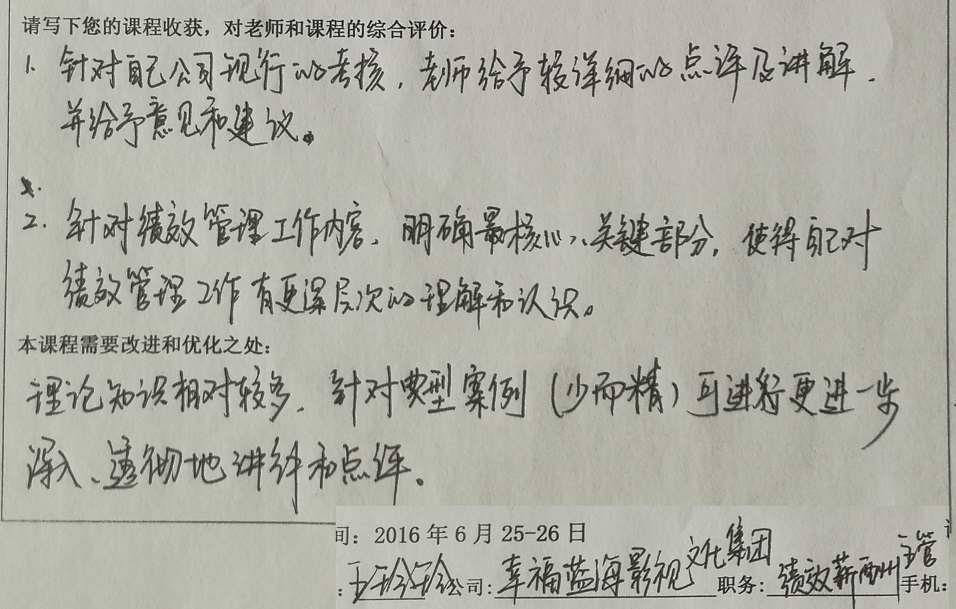 请写下您的课程收获，对老师和课程的综合评价：
1. 针对自己公司现行的考核，老师给予较详细的点评及讲解，
并给予意见和建议。
2. 针对绩效管理工作内容，明确最核心、关键部分，使得自己对
绩效管理工作有更深层次的理解和认识。
本课程需要改进和优化之处：
理论知识相对较多，针对典型案例（少而精）可进行更进一步
深入、透彻地讲解和点评。
司：2016 年 6 月 25-26 日
：王玲玲公司：幸福蓝海影视文化集团 职务：绩效薪酬主管 手机：